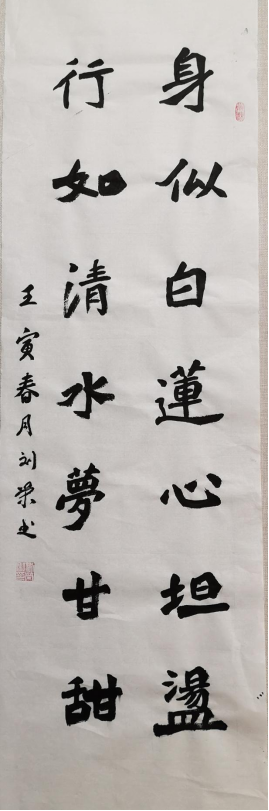 身似白蓮心坦盪
行如清水夢甘甜
壬寅春月刘荣书